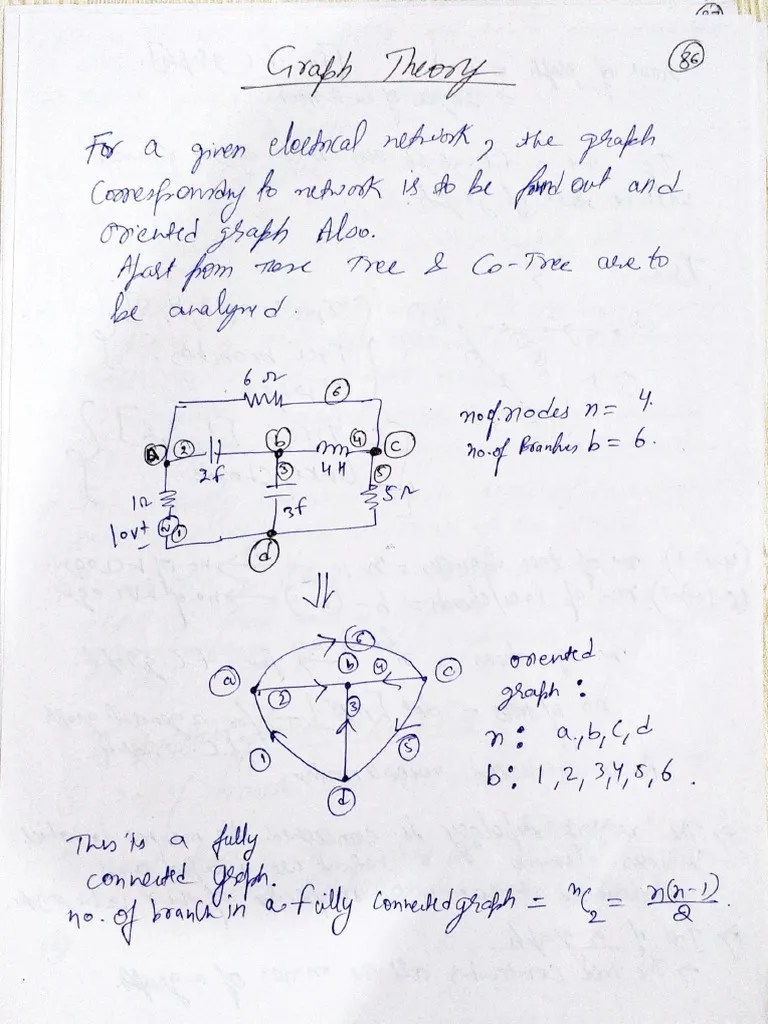 86
Graph Theory
For a given electrical network, the graph
Corresponding to network is to be find out and
oriented graph Also.
Apart from these Tree & Co-Tree are to
be analyzed.
6 Ω
6
a 2 b 4 c
2f 3 4H 5
1Ω 3f 5Ω
10v + - 1
d
no. of nodes n = 4.
no. of Branches b = 6.
⇓
6
a 2 b 4 c
1 3 5
d
oriented
graph :
n : a, b, c, d
b : 1, 2, 3, 4, 5, 6 .
This is a fully
connected graph.
no. of branch in a fully connected graph = ⁿC₂ = n(n-1)/2 .